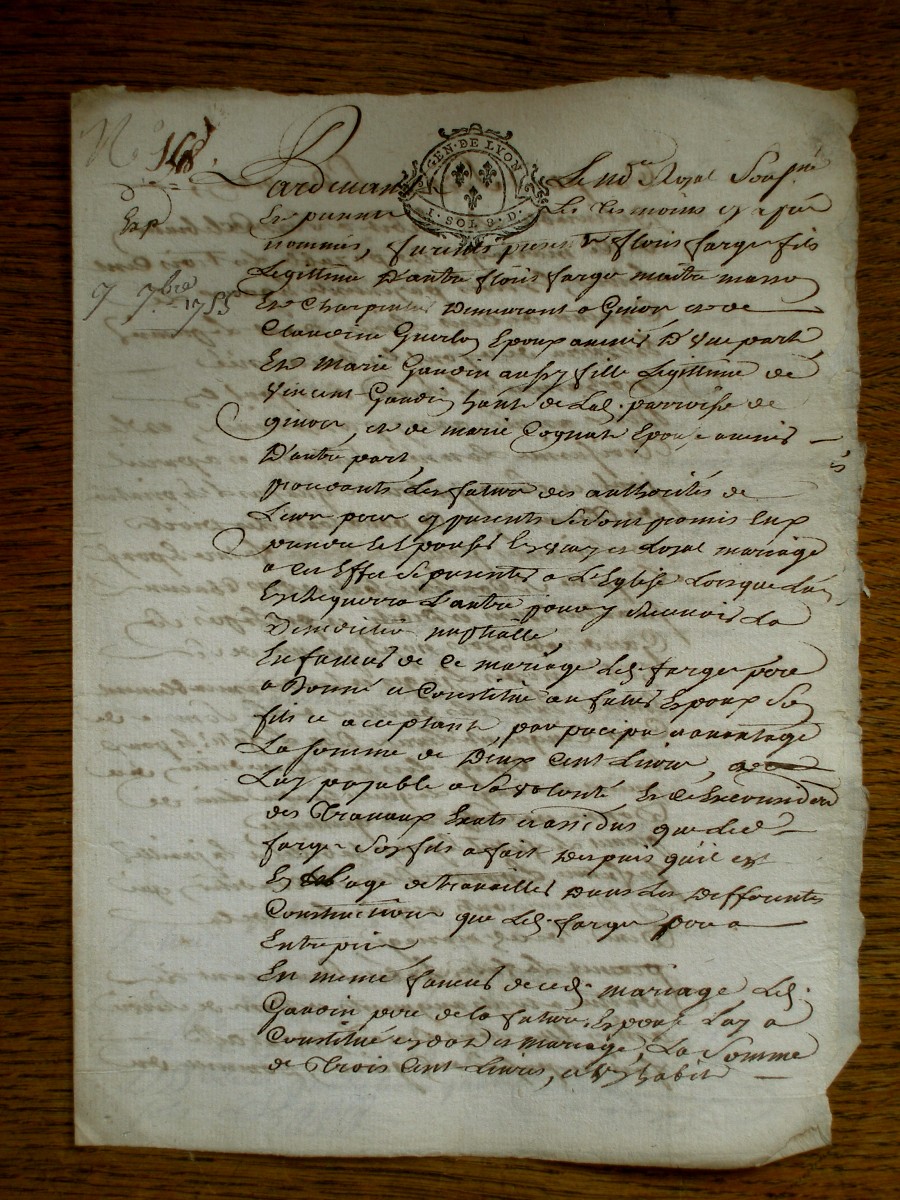 N° 168
Exp
9 7bre 1755
GEN. DE LYON
1. SOL 9. D.
Pardevant Le No.re Royal Sousig.né
Et en presence Des Tesmoins cy apres
nommés, furent presents floris farge fils
Legittime D'autre floris farge maitre masson
Et Charpentier Demeurant a Ginou et de
Claudine Epoux avenir D'Une part
Et Marie Gaudin aussy fille Legittime de
Vincent Gaudin habt de Lad. parroisse de
ginou, et de marie Cognat Epouse avenir
D'autre part
procedants Les futurs des authorités de
Leurs peres cy presents se sont promis Eux
prendre et Epouser En vray et Loyal mariage
a Cet Effet se presenter a L'Eglise Lorsque L'un
En Requerra L'autre pour y Recevoir La
Benediction nuptialle
En faveur de Ce mariage Led. farge père
a Donné et Constitué au futur Epoux So
fils ce acceptant, par precipu et avantage
La somme de Deux Cent Livres,
Luy payable a sa volonté Et de
des Travaux et assidus que Led
farge Son fils a fait Depuis qu'il est
En age de travailler Dans Les Differentes
Constructions que Led. farge pere a
Entrepris
En meme faveur de ced. mariage Led.
Gaudin pere de la future Epouse Luy a
Constitué en dot et mariage, La Somme
de Trois Cent Livres, et Un habit